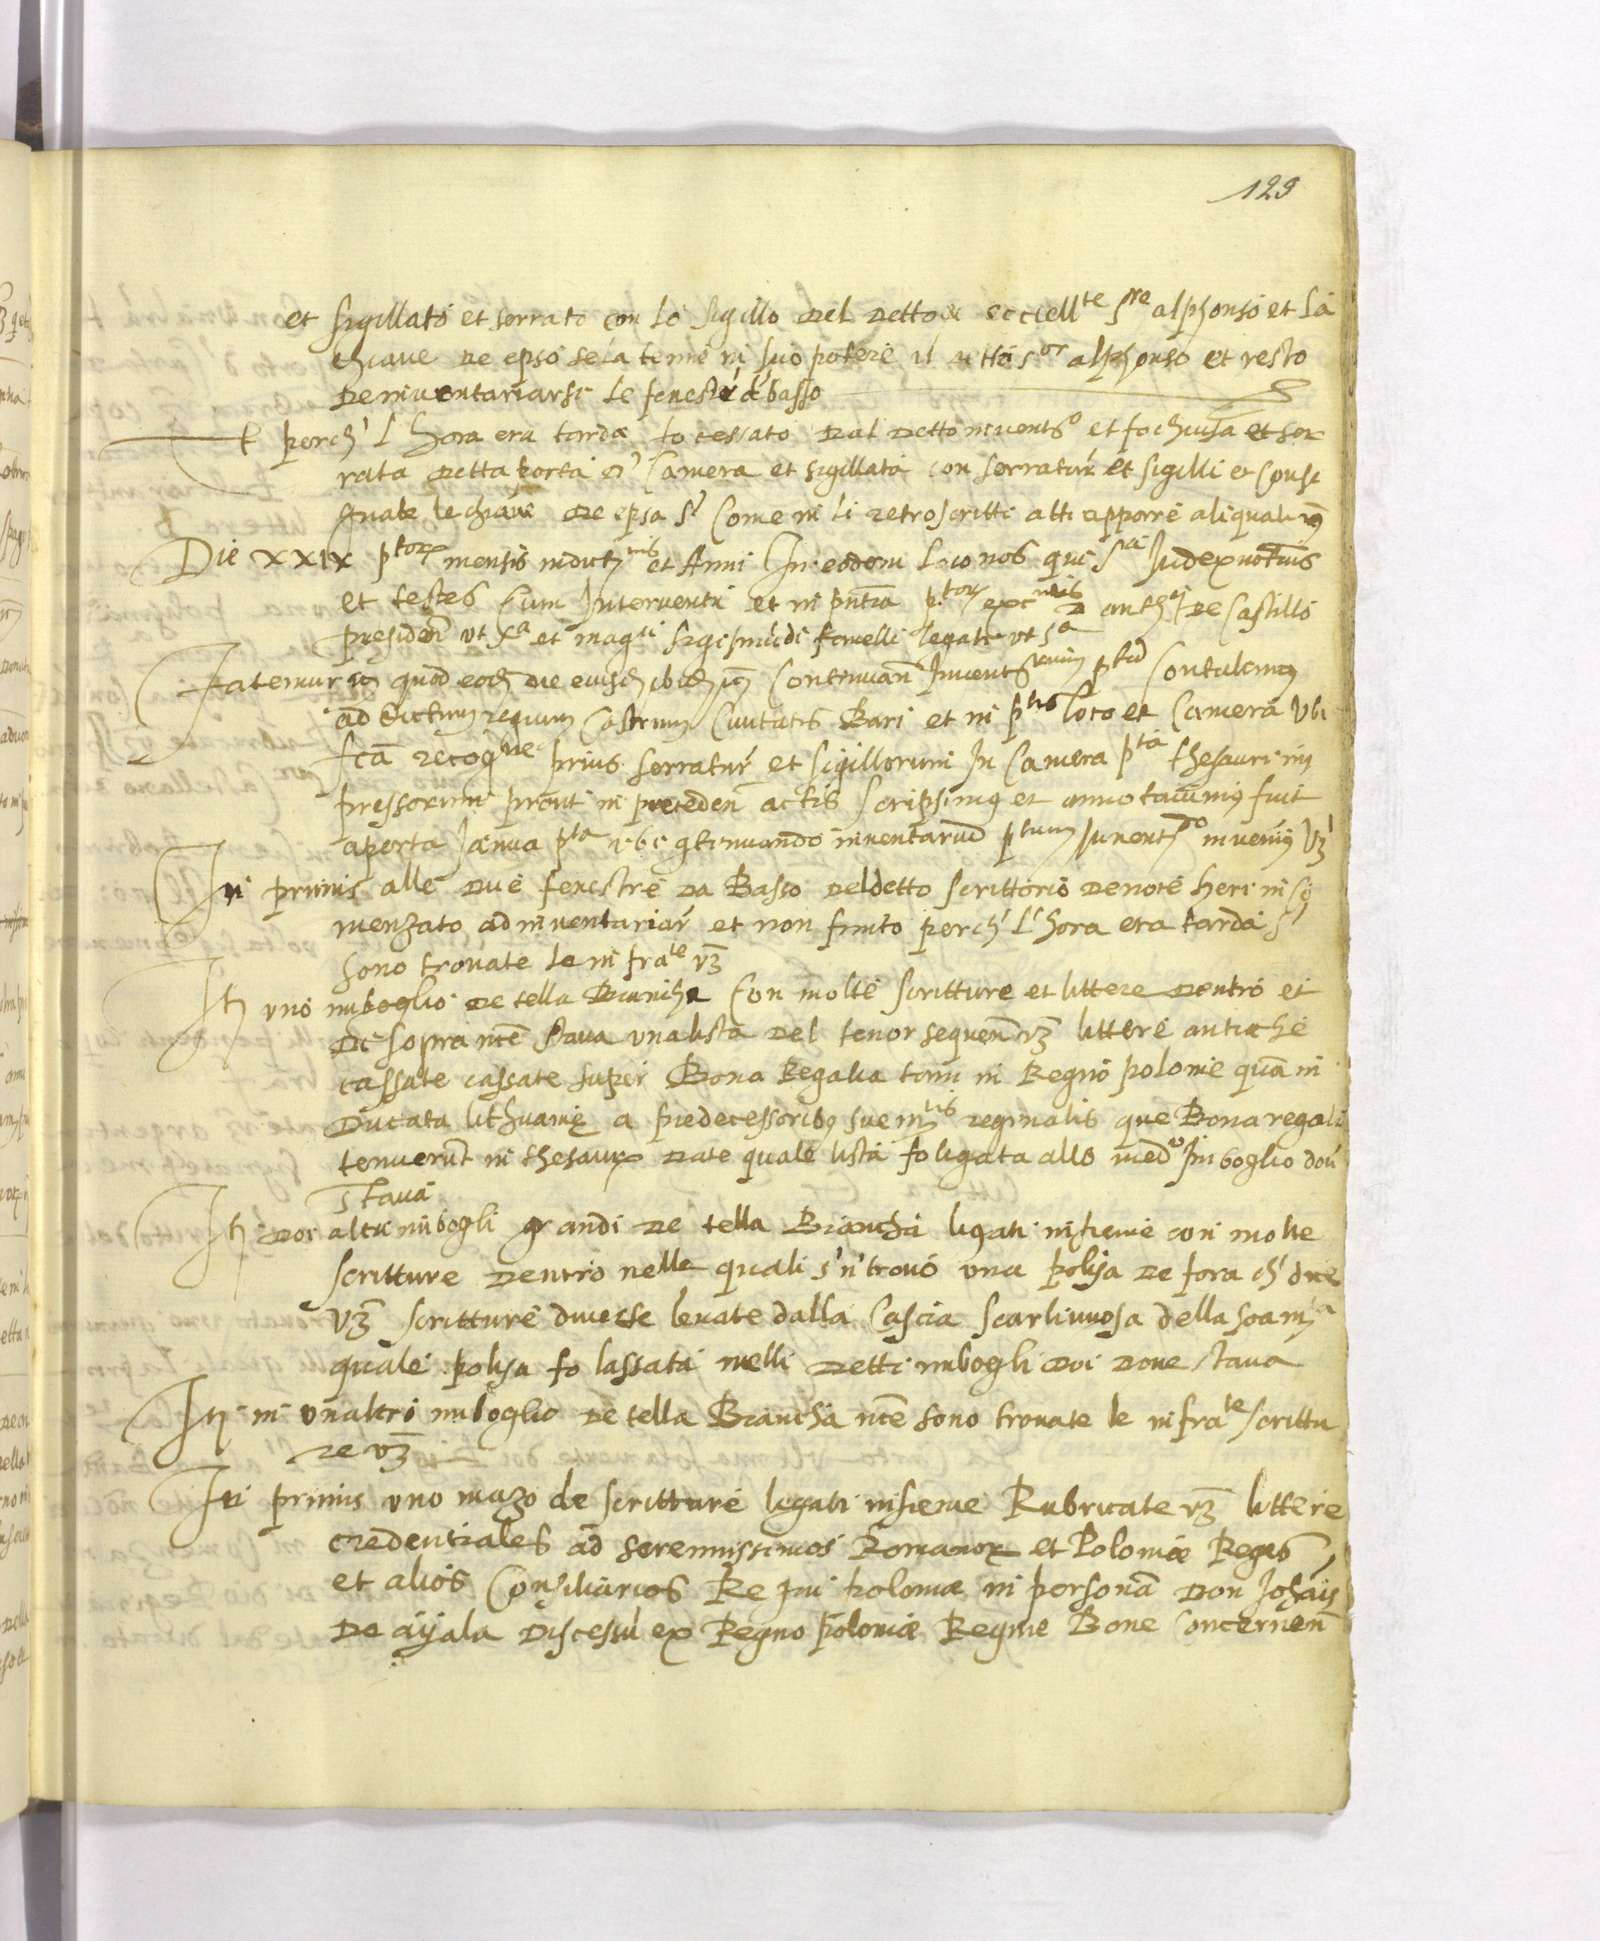 129
et sigillato et serrato con lo sigillo del detto eccell.te s.re alphonso et la
chiave de epso se la tenne in suo potere il detto s.or alphonso et resto
de inventariarse le fenestre de basso
Et perch' l'hora era tarda fo cessato dal detto invent.o et fo chiusa et ser
rata detta porta d' Camera et sigillata con serratur' et sigilli et consi
gnate le chiave de epsa s' come in li retroscritti atti appare
Die XXIX p.tor mensis indict.nis et Anni In eodem loco nos qui s.ti Judex notarius
et testes cum Interventu et in pntia p.tor de Castillo
presiden ut s.a et mag.ci sigismudi fanelli legati ut s.a
Fatemur quod eod die Continuan Invent p.tum Contulimus
ad dictum regium Castrum Civitatis Bari et in p.tis loco et Camera Ubi
fca recog.ne prius serratur et sigillorum In Camera p.ta thesauri im
pressorum prout in preceden actis scripsimus et annotavimus fuit
aperta Janua p.ta ibi continuando inventarium p.tum
In primis alle due fenestre da Basso del detto scrittorio de note heri inco
menzato ad inventariar et non finito perch' l'hora era tarda s'
sono trovate le infra.te vz
It uno imboglio de tella Biancha con molte scritture et littere dentro et
di sopra nce stava una lista del tenor sequen vz littere antiche
cassate cassate super Bona Regalia tam in Regno polonie quam in
Ducatu lithuanie a predecessoribus sue m.tis reginalis que Bona regalia
tenuerunt in thesauro date quale lista fo ligata allo med.o imboglio dov'
stava
It doi altri imbogli grandi de tella Biancha ligati insieme con molte
scritture dentro nelle quali s'n' trovò una polisa de fora ch' dice
vz scritture diverse levate dalla Cascia della
quale polisa fo lassata nelli detti imbogli doi dove stava
It in un altro imboglio de tella Biancha nce sono trovate le infra.te scrittu
re vz
In primis uno mazo de scritture ligati insieme Rubricate vz littere
credentiales ad serenissimos Romanor et Poloniæ Reges
et alios Consiliarios Regni poloniæ in personam Don Johais
de ayala discessu ex Regno poloniæ Regine Bone Concernen